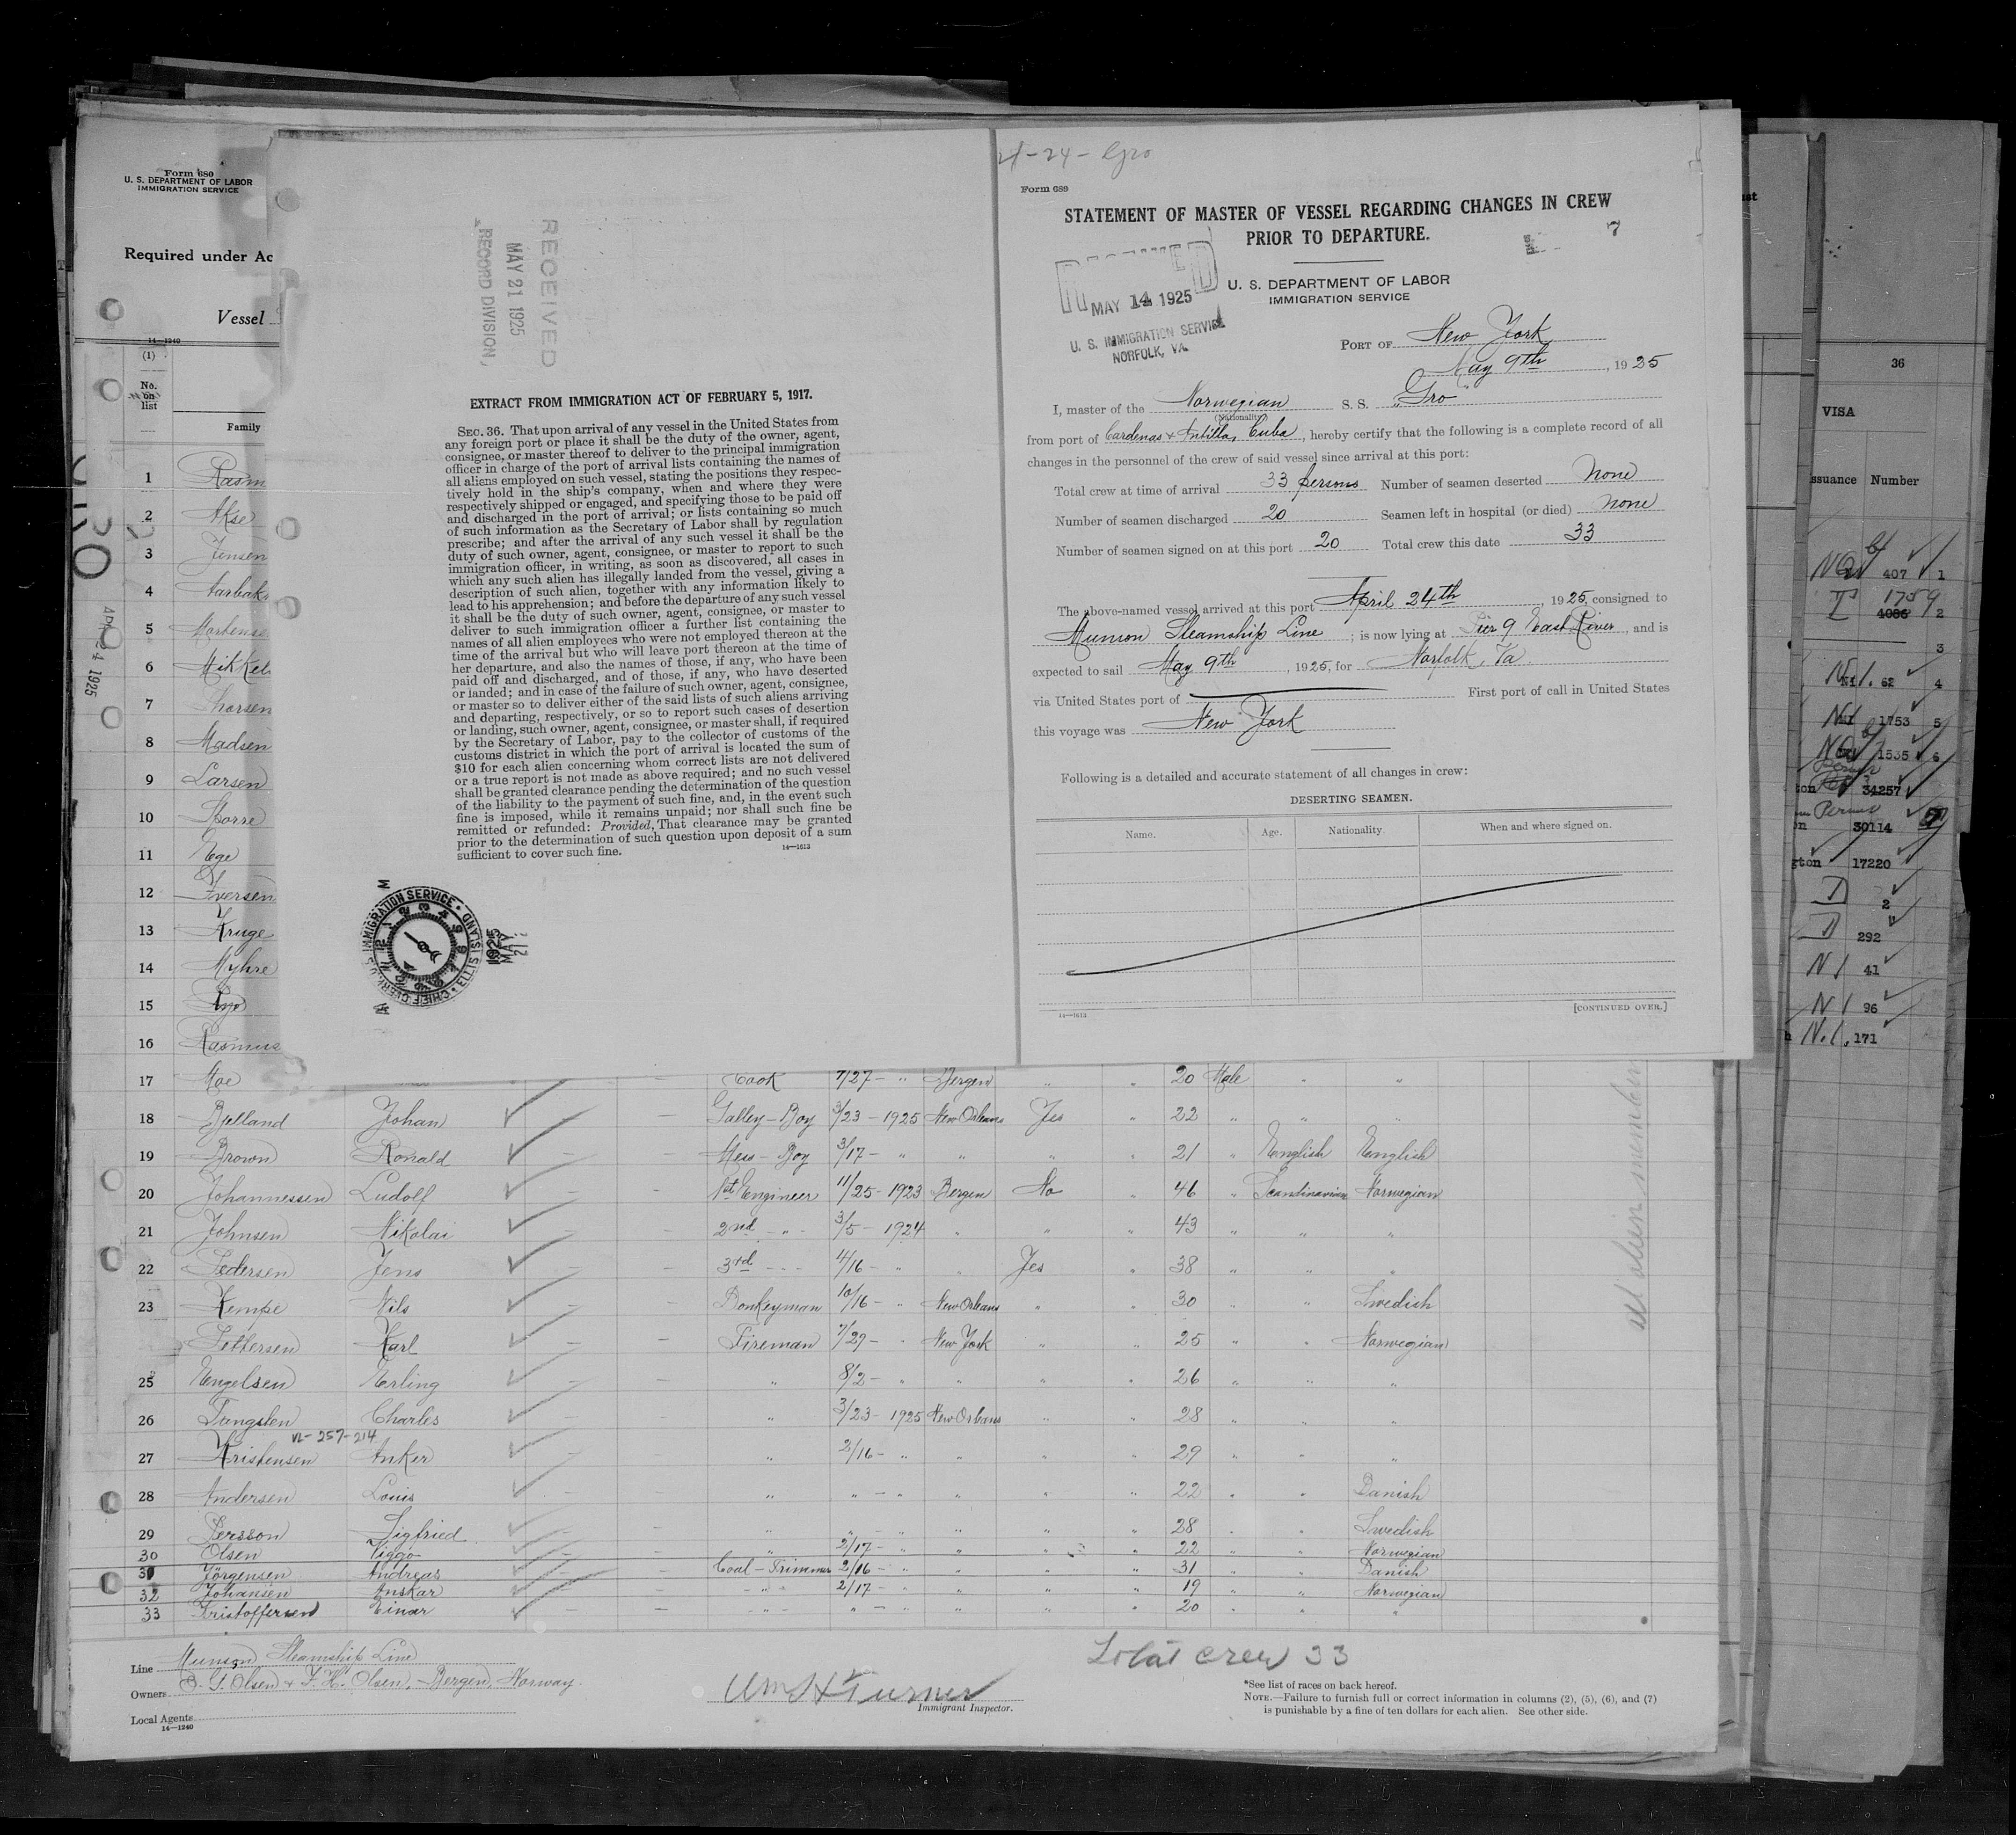 Form 680
U. S. DEPARTMENT OF LABOR
IMMIGRATION SERVICE
Required under Ac
Vessel
14—1240
(1)
No.
on
list
Family
1 Rasm
2 Akse
3 Jensen
4 Aarbakk
5 Mortense
6 Mikkel
7 Thorsen
8 Madsen
9 Larsen
10 Sporre
11 Ege
12 Iversen
13 Kruge
14 Myhre
15
16 Rasmus
APR 24 1925
RECEIVED
MAY 21 1925
RECORD DIVISION,
EXTRACT FROM IMMIGRATION ACT OF FEBRUARY 5, 1917.
SEC. 36. That upon arrival of any vessel in the United States from
any foreign port or place it shall be the duty of the owner, agent,
consignee, or master thereof to deliver to the principal immigration
officer in charge of the port of arrival lists containing the names of
all aliens employed on such vessel, stating the positions they respec-
tively hold in the ship's company, when and where they were
respectively shipped or engaged, and specifying those to be paid off
and discharged in the port of arrival; or lists containing so much
of such information as the Secretary of Labor shall by regulation
prescribe; and after the arrival of any such vessel it shall be the
duty of such owner, agent, consignee, or master to report to such
immigration officer, in writing, as soon as discovered, all cases in
which any such alien has illegally landed from the vessel, giving a
description of such alien, together with any information likely to
lead to his apprehension; and before the departure of any such vessel
it shall be the duty of such owner, agent, consignee, or master to
deliver to such immigration officer a further list containing the
names of all alien employees who were not employed thereon at the
time of the arrival but who will leave port thereon at the time of
her departure, and also the names of those, if any, who have been
paid off and discharged, and of those, if any, who have deserted
or landed; and in case of the failure of such owner, agent, consignee,
or master so to deliver either of the said lists of such aliens arriving
and departing, respectively, or so to report such cases of desertion
or landing, such owner, agent, consignee, or master shall, if required
by the Secretary of Labor, pay to the collector of customs of the
customs district in which the port of arrival is located the sum of
$10 for each alien concerning whom correct lists are not delivered
or a true report is not made as above required; and no such vessel
shall be granted clearance pending the determination of the question
of the liability to the payment of such fine, and, in the event such
fine is imposed, while it remains unpaid; nor shall such fine be
remitted or refunded: Provided, That clearance may be granted
prior to the determination of such question upon deposit of a sum
sufficient to cover such fine.
14—1613
U.S. IMMIGRATION SERVICE • ELLIS ISLAND • CHIEF CLERK
1925 MAY 12
4-24- Gro
Form 689
STATEMENT OF MASTER OF VESSEL REGARDING CHANGES IN CREW
PRIOR TO DEPARTURE.
7
RECEIVED
MAY 14 1925
U. S. IMMIGRATION SERVICE
NORFOLK, VA.
U. S. DEPARTMENT OF LABOR
IMMIGRATION SERVICE
PORT OF New York
May 9th, 1925
I, master of the Norwegian S. S. "Gro"
(Nationality)
from port of Cardenas & Antilla, Cuba, hereby certify that the following is a complete record of all
changes in the personnel of the crew of said vessel since arrival at this port:
Total crew at time of arrival 33 persons Number of seamen deserted None
Number of seamen discharged 20 Seamen left in hospital (or died) None
Number of seamen signed on at this port 20 Total crew this date 33
The above-named vessel arrived at this port April 24th, 1925, consigned to
Munson Steamship Line; is now lying at Pier 9 East River, and is
expected to sail May 9th, 1925, for Norfolk, Va.
via United States port of First port of call in United States
this voyage was New York
Following is a detailed and accurate statement of all changes in crew:
DESERTING SEAMEN.
Name. Age. Nationality. When and where signed on.
14—1613
[CONTINUED OVER.]
36
VISA
ssuance Number
407 1
1759
4086 2
3
N1. 62 4
N1 1753 5
1535 6
ton 34257
30114
gton 17220
D 2
D 292
N1 41
N1 96
N.1. 171
17 Moe Cook 7/27 - " Bergen " " 20 Male " "
18 Bjelland Johan Galley-Boy 3/23 - 1925 New Orleans Yes " 22 " " "
19 Brown Ronald Mess-Boy 3/17 - " " " " 21 " English English
20 Johannessen Ludolf 1st Engineer 11/25 - 1923 Bergen No " 46 " Scandinavian Norwegian
21 Johnsen Nikolai 2nd " 3/5 - 1924 " " " 43 " " "
22 Pedersen Jens 3rd 4/16 - " " Yes " 38 " " "
23 Kempe Nils Donkeyman 10/16 - " New Orleans " " 30 " " Swedish
Pettersen Karl Fireman 7/29 - " New York " " 25 " " Norwegian
25 Engelsen Erling " 8/2 - " " " " 26 " " "
26 Tangslen Charles " 3/23 - 1925 New Orleans " " 28 " " "
VL-257-214
27 Kristensen Anker " 2/16 - " " " " 29 " " "
28 Andersen Louis " " - " " " " 22 " " Danish
29 Persson Sigfried " " - " " " " 28 " " Swedish
30 Olsen Viggo " 2/17 - " " " 22 " " Norwegian
31 Jörgensen Andreas Coal-Trimmer 2/16 - " " " " 31 " " Danish
32 Johansen Anskar " 2/17 - " " " " 19 " " Norwegian
33 Kristoffersen Einar " " - " " " " 20 " " "
all alien members
Line Munson Steamship Line
Owners O. J. Olsen & F. H. Olsen, Bergen, Norway.
Local Agents
14—1240
Wm H Turner
Immigrant Inspector.
Total crew 33
*See list of races on back hereof.
NOTE.—Failure to furnish full or correct information in columns (2), (5), (6), and (7)
is punishable by a fine of ten dollars for each alien. See other side.